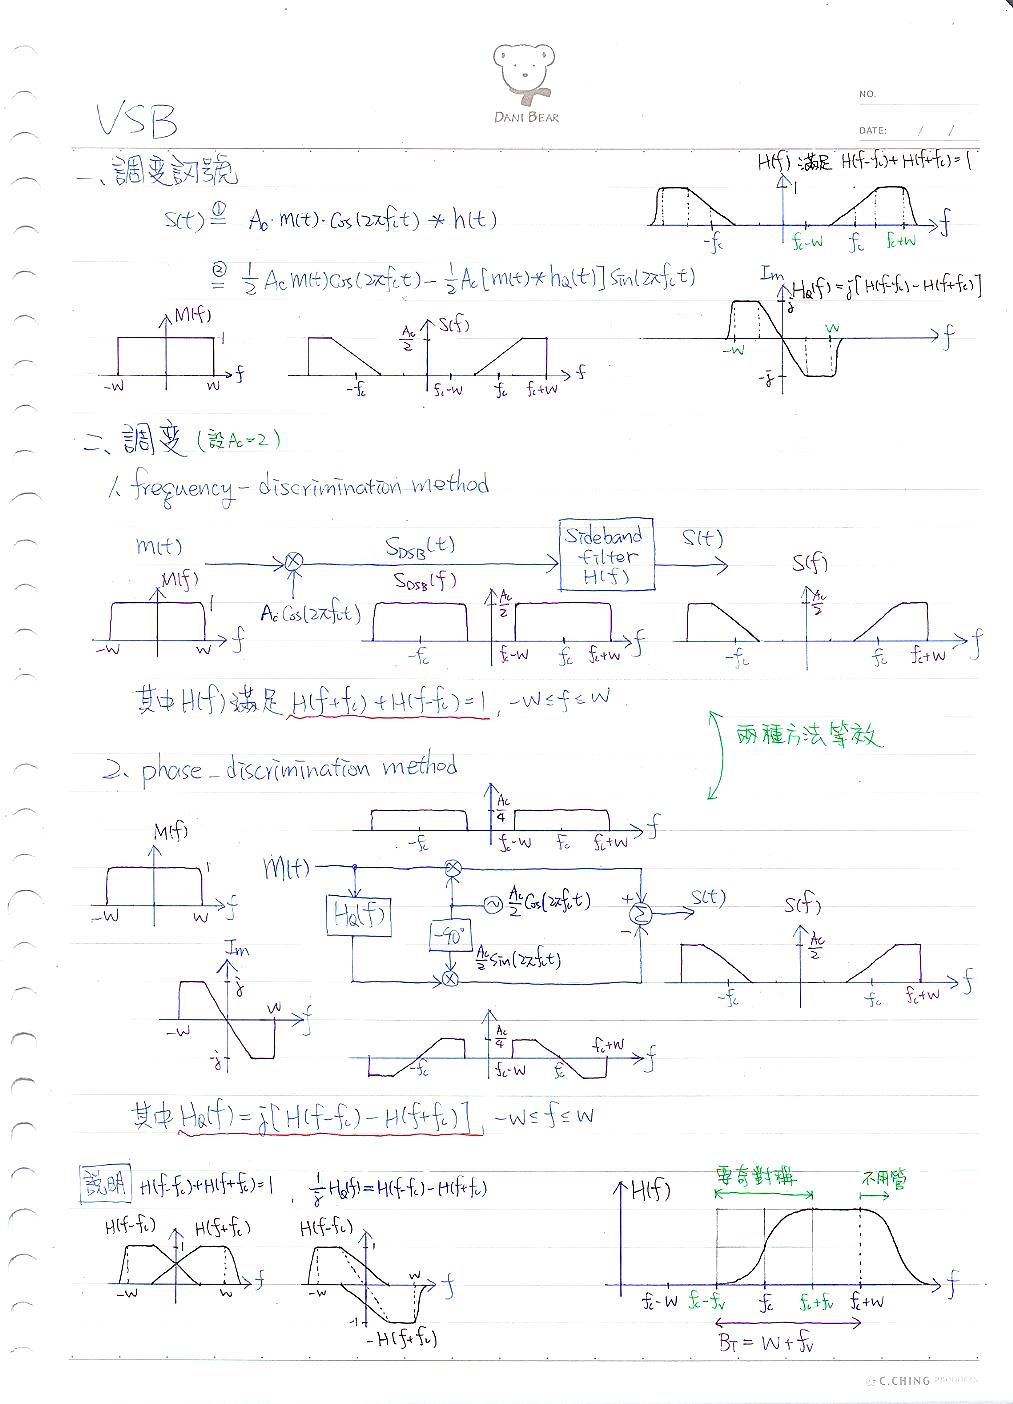 DANI BEAR
NO.
DATE: / /
VSB
一、調变訊號
H(f) 滿足 H(f-fc)+H(f+fc)=1
S(t) ①= Ac·m(t)·Cos(2πfct) * h(t)
1
-fc fc-W fc fc+W f
②= 1/2 Ac m(t)Cos(2πfct) - 1/2 Ac[m(t)*hQ(t)] Sin(2πfct)
Im
HQ(f)=j[H(f-fc)-H(f+fc)]
j
-W W f
-j
M(f)
1
-W W f
Ac/2 S(f)
-fc fc-W fc fc+W f
二、調变 (設Ac=2)
1. frequency-discrimination method
m(t) SDSB(t) Sideband filter H(f) S(t)
Ac Cos(2πfct)
M(f)
1
-W W f
SDSB(f)
Ac/2
-fc fc-W fc fc+W f
S(f)
Ac/2
-fc fc fc+W f
其中H(f)滿足 H(f+fc)+H(f-fc)=1, -W≤f≤W
兩種方法等效
2. phase-discrimination method
Ac/4
-fc fc-W fc fc+W f
M(f)
1
-W W f
m(t)
HQ(f)
Ac/2 Cos(2πfct)
-90°
Ac/2 Sin(2πfct)
+ Σ -
S(t)
S(f)
Ac/2
-fc fc fc+W f
Im
j
-W W f
-j
Ac/4
-fc fc-W fc fc+W f
其中 HQ(f)=j[H(f-fc)-H(f+fc)], -W≤f≤W
說明 H(f-fc)+H(f+fc)=1, 1/j HQ(f)=H(f-fc)-H(f+fc)
H(f-fc) H(f+fc)
1
-W W f
H(f-fc)
1
-W W f
-1
-H(f+fc)
要奇對稱 不用管
H(f)
fc-W fc-fv fc fc+fv fc+W f
BT=W+fv
C.CHING PRODUCTS